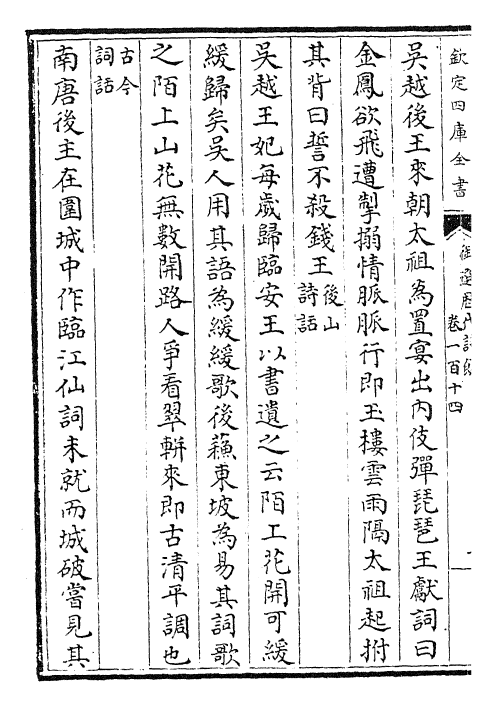 欽定四庫全書
御選歷代詩餘
卷一百十四
吳越後王來朝太祖為置宴出內伎彈琵琶王獻詞曰
金鳳欲飛遭掣搦情脈脈行即玉樓雲雨隔太祖起拊
其背曰誓不殺錢王後山詩話
吳越王妃每歲歸臨安王以書遺之云陌上花開可緩
緩歸矣吳人用其語為緩緩歌後蘇東坡為易其詞歌
之陌上山花無數開路人爭看翠軿來即古清平調也
古今詞話
南唐後主在圍城中作臨江仙詞未就而城破嘗見其